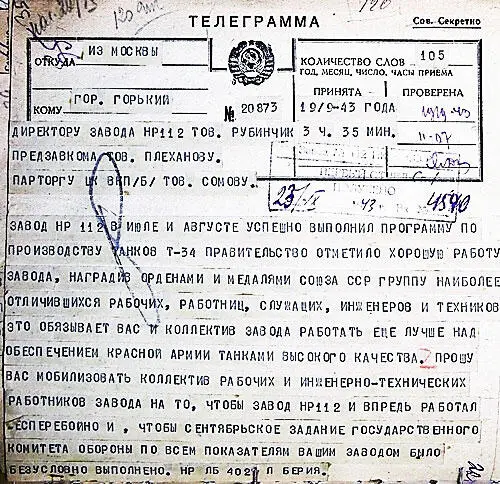 120
120 ант
ТЕЛЕГРАММА
Сов. Секретно
ОТКУДА
ИЗ МОСКВЫ
КОЛИЧЕСТВО СЛОВ 105
ГОД, МЕСЯЦ, ЧИСЛО, ЧАСЫ ПРИЕМА
КОМУ
ГОР. ГОРЬКИЙ
№ 20873
ПРИНЯТА -
ПРОВЕРЕНА
19/9-43 ГОДА
19/9-43
ДИРЕКТОРУ ЗАВОДА НР112 ТОВ. РУБИНЧИК 3 Ч. 35 МИН.
ПРЕДЗАВКОМА ТОВ. ПЛЕХАНОВУ.
ПАРТОРГУ ЦК ВКП/Б/ ТОВ. СОМОВУ.
23/IX 43 4590
ЗАВОД НР 112 В ИЮЛЕ И АВГУСТЕ УСПЕШНО ВЫПОЛНИЛ ПРОГРАММУ ПО
ПРОИЗВОДСТВУ ТАНКОВ Т-34 ПРАВИТЕЛЬСТВО ОТМЕТИЛО ХОРОШУЮ РАБОТУ
ЗАВОДА, НАГРАДИВ ОРДЕНАМИ И МЕДАЛЯМИ СОЮЗА ССР ГРУППУ НАИБОЛЕЕ
ОТЛИЧИВШИХСЯ РАБОЧИХ, РАБОТНИЦ, СЛУЖАЩИХ, ИНЖЕНЕРОВ И ТЕХНИКОВ
ЭТО ОБЯЗЫВАЕТ ВАС И КОЛЛЕКТИВ ЗАВОДА РАБОТАТЬ ЕЩЕ ЛУЧШЕ НАД
ОБЕСПЕЧЕНИЕМ КРАСНОЙ АРМИИ ТАНКАМИ ВЫСОКОГО КАЧЕСТВА. ПРОШУ
ВАС МОБИЛИЗОВАТЬ КОЛЛЕКТИВ РАБОЧИХ И ИНЖЕНЕРНО-ТЕХНИЧЕСКИХ
РАБОТНИКОВ ЗАВОДА НА ТО, ЧТОБЫ ЗАВОД НР112 И ВПРЕДЬ РАБОТАЛ
БЕСПЕРЕБОЙНО И, ЧТОБЫ СЕНТЯБРЬСКОЕ ЗАДАНИЕ ГОСУДАРСТВЕННОГО
КОМИТЕТА ОБОРОНЫ ПО ВСЕМ ПОКАЗАТЕЛЯМ ВАШИМ ЗАВОДОМ БЫЛО
БЕЗУСЛОВНО ВЫПОЛНЕНО. НР ЛБ 4027 Л БЕРИЯ.